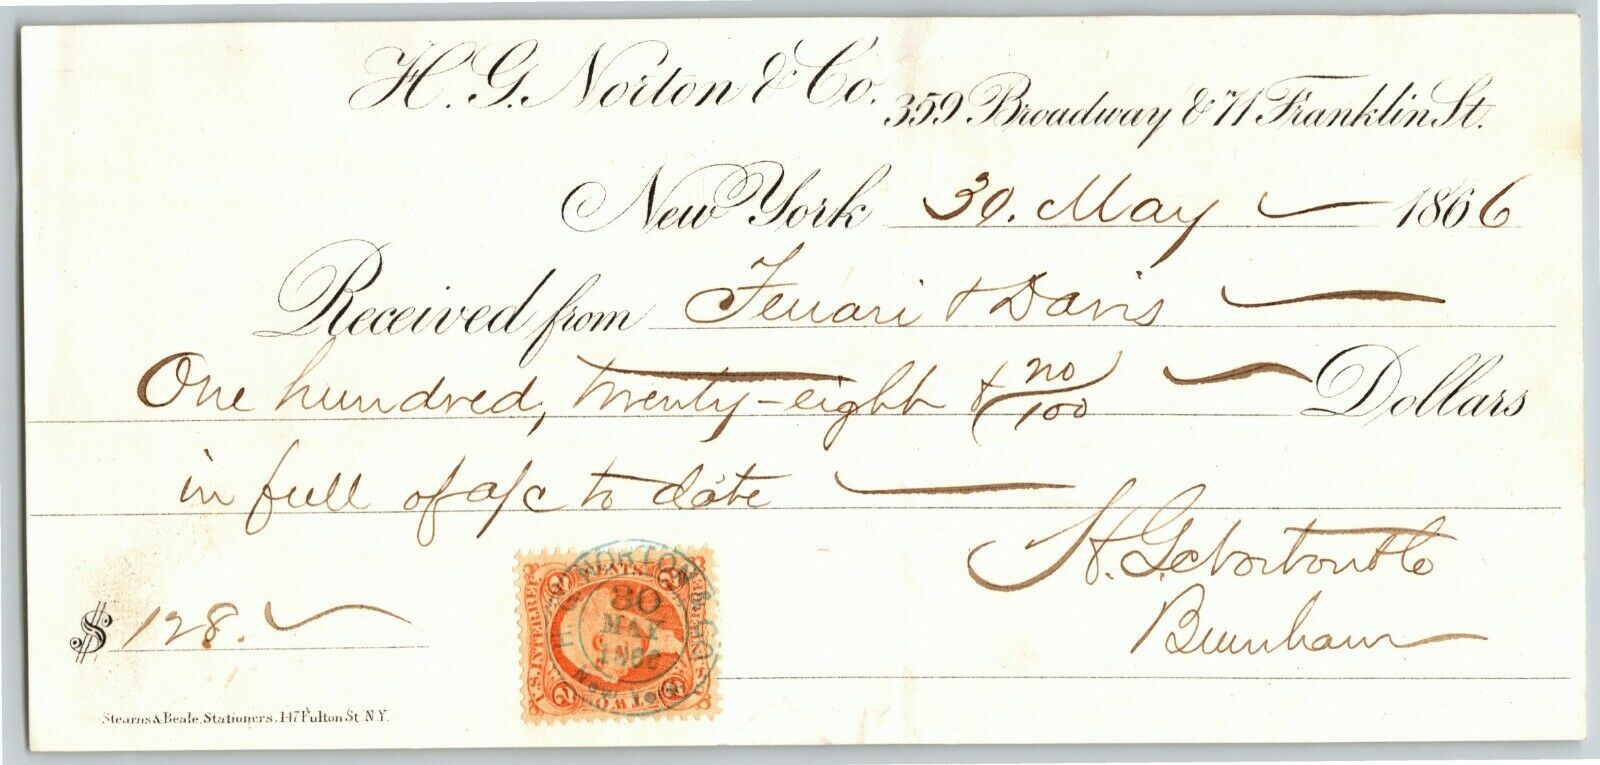 H. G. Norton & Co. 359 Broadway & 71 Franklin St.
New York 30. May 1866
Received from Ferrari & Davis
One hundred, twenty-eight & no/100 Dollars
in full of a/c to date
H. G. Norton & Co
Burnham
$ 128.
U.S. INTER. REV.
TWO CENTS
2 2 2 2
H. G. NORTON & CO.
30
MAY
1866
NEW YORK
Stearns & Beale, Stationers, 147 Fulton St. N.Y.